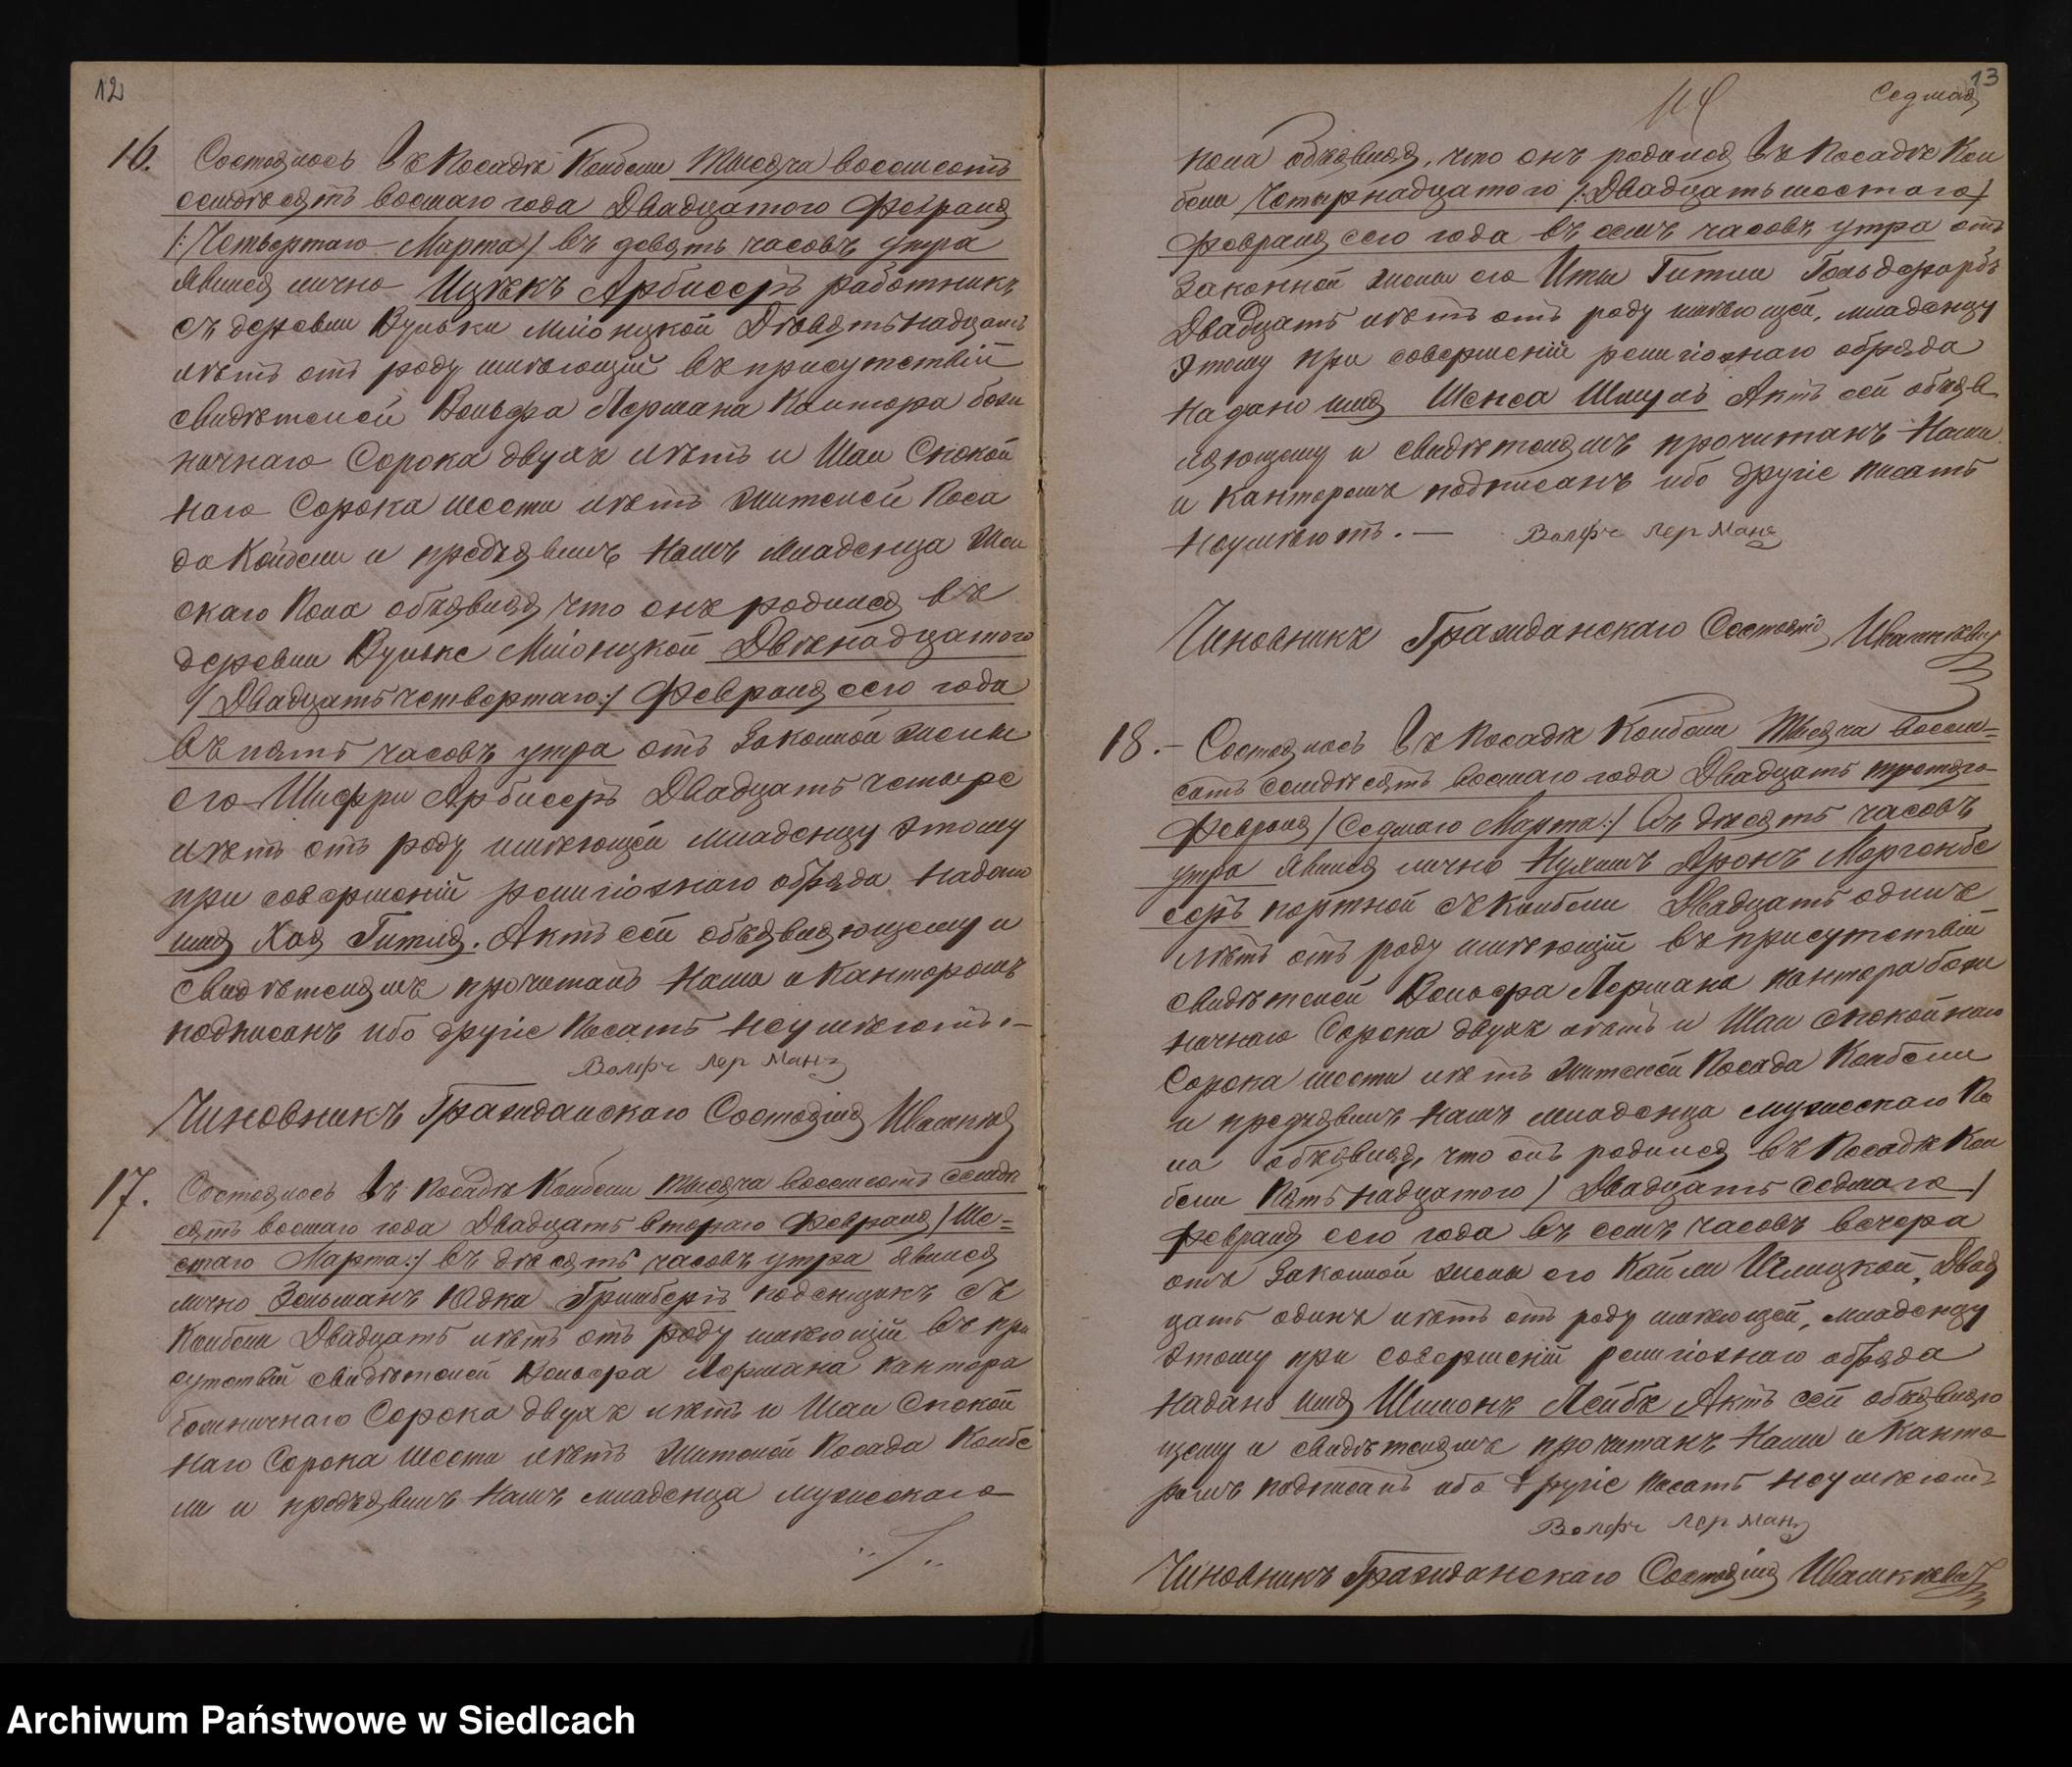 12
16. Состоялось въ Посадѣ Колбели Тысяча восемсотъ
семдѣсятъ восмаго года Двадцатого Февраля
/:Четвертаго Марта:/ въ девять часовъ утра
явился лично Ицекъ Арбисеръ работникъ
съ деревни Вульки Млоницкой Дѣвятьнадцать
лѣтъ отъ роду имѣющій въ присутствій
свидѣтелей Вольфа Лермана Кантора боли
ничнаго Сорока двухъ лѣтъ и Шаи Спокой
наго Сорока шести лѣтъ жителей Поса
да Колбели и предъявилъ намъ младенца Жен
скаго Пола объявляя, что онъ родился въ
деревни Вульке Млоницкой Двѣнадцатого
/:Двадцать четвертаго:/ Февраля сего года
въ пять часовъ утра отъ Законной жены
его Шифри Арбисеръ Двадцать четыре
лѣтъ отъ роду имѣющей младенцу этому
при совершеній религіознаго обряда надано
имя Хая Гитля. Актъ сей объявляющему и
свидѣтелямъ прочитанъ Нами и Канторомъ
подписанъ ибо другіе Писать неумѣютъ.—
Волфъ Лер Манъ
Чиновникъ Гражданскаго Состоянія
17. Состоялось въ Посадѣ Колбели Тысяча восемсотъ семдѣ
сятъ восмаго года Двадцать втораго Февраля /:Ше=
стаго Марта:/ въ дѣсять часовъ утра явился
лично Зельманъ Юдка Гринбергъ поденщикъ съ
Колбели Двадцать лѣтъ отъ роду имѣющій въ при
сутствій свидѣтелей Вольфа Лермана кантора
болничнаго Сорока двухъ лѣтъ и Шаи Спокой
наго Сорока Шести лѣтъ Жителей Посада Колбе
ли и предъявилъ Намъ младенца мужескаго
../..
13
Седмая
пола объявляя, что онъ родился въ Посадѣ Кол
бели Четырнадцатого /:Двадцать шестаго:/
Февраля сего года въ семъ часовъ утра отъ
Законной жены его Иты Гитли Гольдфарбъ
Двадцать лѣтъ отъ роду имѣющей, младенцу
этому при совершеній религіознаго обряда
надано имя Шепса Шмуль Актъ сей объяв
ляющему и свидѣтелямъ прочитанъ Нами
и Канторомъ подписанъ ибо другіе писать
Неумѣютъ.— Волфъ Лер Манъ
Чиновникъ Гражданскаго Состоянія
18.— Состоялось въ Посадѣ Колбели Тысяча восем=
сотъ семдѣсятъ восмаго года Двадцать третяго
Февраля /:Седмаго Марта:/ въ дѣсять часовъ
утра явился лично Нухимъ Аронъ Моргенбе
серъ портной съ Колбели Двадцать одинъ
лѣтъ отъ роду имѣющій въ присутствій
свидѣтелей Вольфа Лермана кантора боли
ничнаго Сорока двухъ лѣтъ и Шаи спокойнаго
Сорока шести лѣтъ жителей Посада Колбели
и предъявилъ намъ младенца мужескаго По
ла объявляя, что онъ родился въ Посадѣ Кол
бели Пятьнадцатого /:Двадцать седмаго:/
Февраля сего года въ семъ часовъ вечера
отъ Законной жены его Кайли Двад
цать одинъ лѣтъ отъ роду имѣющей, младенцу
этому при совершеній религіознаго обряда
надано имя Шимонъ Лейбъ Актъ сей объявляю
щему и свидѣтелямъ прочитанъ Нами и Канто
ромъ подписанъ ибо другіе писать неумѣютъ
Волфъ Лер Манъ
Чиновникъ Гражданскаго Состоянія Ивашкевич
Archiwum Państwowe w Siedlcach